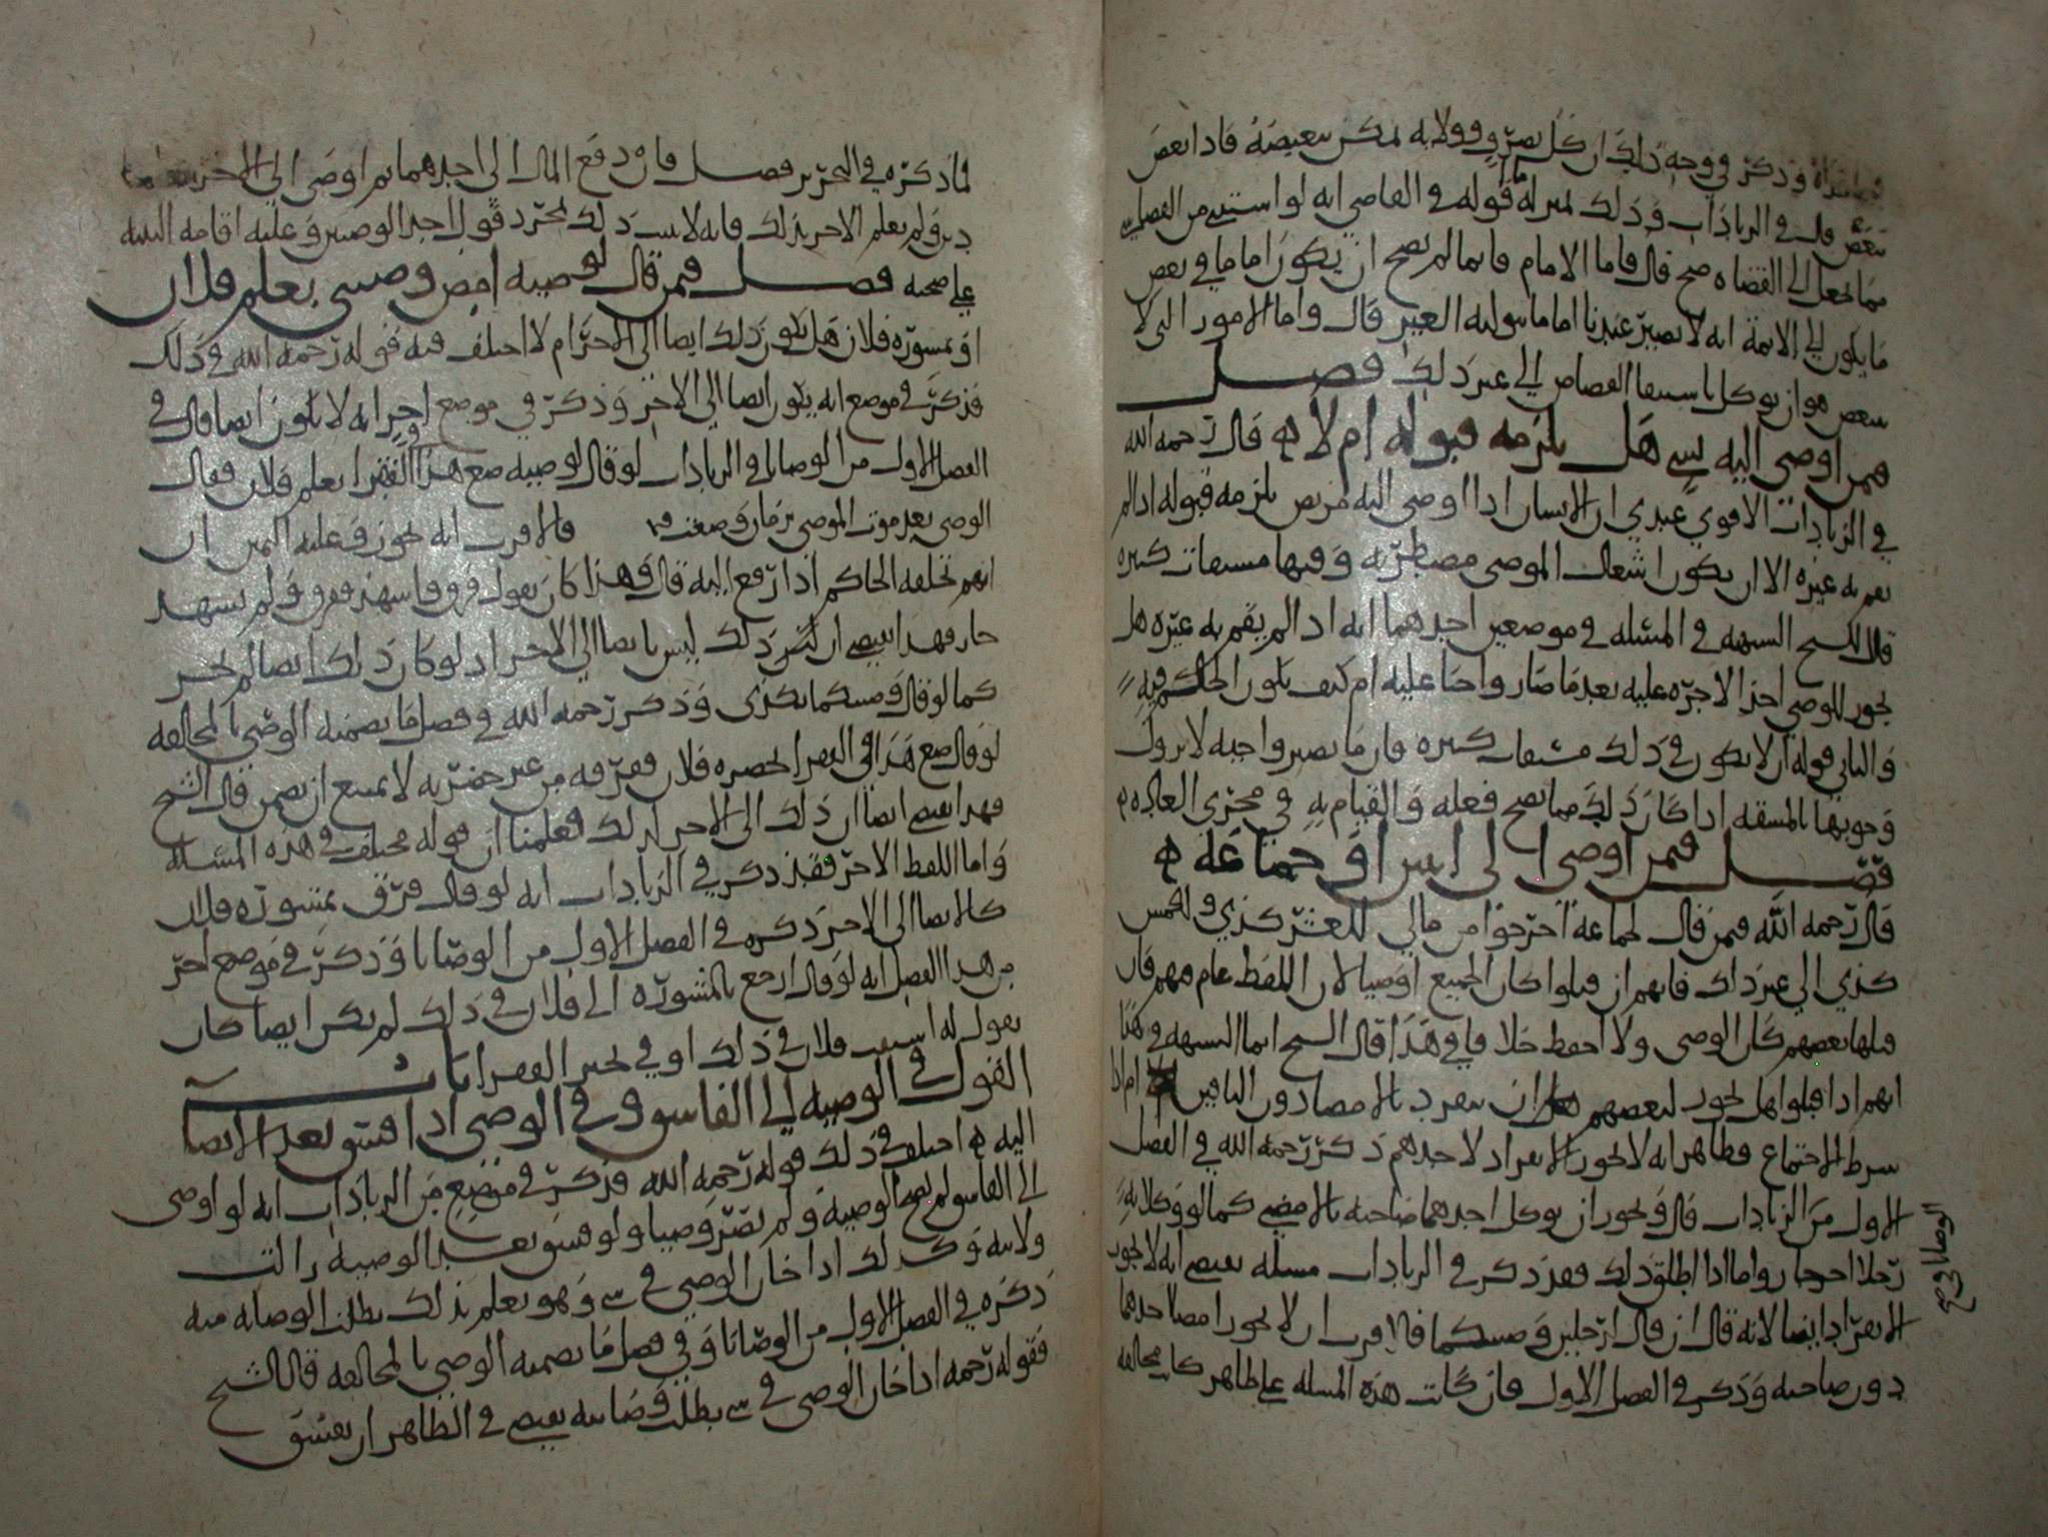 وذكر في وجه ذلك ان كل تصرف وولايه يمكن تبعيضه فاذا بعض
تبعض قال في الزيادات وذلك بمنزلة قوله في القاضي انه لو استثنى من الفصل
مما يجعل الى القضاه صح قال فاما الامام فانما لم يصح ان يكون اماما في بعض
ما يكون الى الائمة انه لا يصير عندنا اماما بتوليه الغير قال واما الامور التي لا
تتبعض هو ان يوكل باستيفا القصاص الى غير ذلك فصل
فمن اوصى اليه بشي هل يلزمه قبوله ام لا قال رحمه الله
في الزيادات الاقوى عندي ان الانسان اذا اوصى اليه مريض يلزمه قبوله اذا لم
يقم به غيره الا ان يكون اشغال الموصي مضطربه وفيها مشقات كبيره
قال الشيخ الشبهه في المسئله في موضعين احدهما انه اذا لم يقم به غيره هل
يجوز للوصي اخذ الاجره عليه بعد ما صار واجبا عليه ام كيف يكون الحكم فيه
والثاني قوله ان لا يكون في ذلك مشقات كبيره فان ما يصير واجبه لا يزول
وجوبها بالمشقه اذا كان ذلك مما يصح فعله والقيام به في مجرى العاده
فصل فمن اوصى الى اثنين او جماعة
قال رحمه الله فمن قال لجماعة اخرجوا من مالي للعشر كذي وللخمس
كذي الى غير ذلك فانهم ان قبلوا كان الجميع اوصيا لان اللفظ عام فيهم فان
قبلها بعضهم كان الوصي ولا احفظ خلافا في هذا قال الشيخ انما الشبهه في هنا
انهم اذا قبلوا هل يجوز لبعضهم ان ينفرد بالامضا دون الباقين ام اذا
شرط الاجتماع فظاهر انه لا يجوز الانفراد لاحدهم ذكر رحمه الله في الفصل
الاول من الزيادات قال ويجوز ان يوكل احدهما صاحبه بالامضى كما لو وكلا به
رجلا اخر جاز واما اذا اطلق ذلك فقد ذكر في الزيادات مسئلة تقتضي انه لا يجوز
الانفراد ايضا لانه قال ان قال لرجلين وصيتكما فالاقرب ان لا يجوز امضا احدهما
دون صاحبه وذكر في الفصل الاول فان كانت هذه المسلة على ظاهر كان مخالفه
الوصايا في صح
لما ذكره في التحرير فصل فان دفع المال الى احدهما ثم اوصى الى الاخر
دين ولم يعلم الاخر بذلك فانه لا يثبت ذلك بمجرد قول احد الوصيين وعليه اقامه البينه
على صحته فصل فمن قال لوصيه امض وصيتي بعلم فلان
او بمشوره فلان هل يكون ذلك ايصا الى الاخر ام لا اختلف فيه قوله رحمه الله في ذلك
فذكر في موضع انه يكون ايصا الى الاخر وذكر في موضع اخر انه لا يكون ايصا قال في
الفصل الاول من الوصايا وفي الزيادات لو قال لوصيه ضع هذا في الفقرا بعلم فلان فقال
الوصي بعد موت الموصي بزمان وضعت فالاقرب انه يجوز وعليه اليمين ان
اتهم تحلفه الحاكم اذا رفع اليه قال وهذا كان يقول فرق واشهد ففرق ولم يشهد
جاز فهذا يقتضي ان يكون ذلك ليس بايصا الى الاخر اذ لو كان ذلك ايصا لم يجز
كما لو قال وصيتكما بكذى وذكر رحمه الله في فصل ما يضمنه الوصي بالمخالفه
لو قال ضع هذا في الفقرا بحضره فلان ففرقه من غير حضرته لا يمتنع ان يضمن قال الشيخ
فهذا يقتضي ايضا ان ذلك الى الاخر كذلك فعلمنا ان قوله مختلف في هذه المسئلة
واما اللفظ الاخر فقد ذكر في الزيادات انه لو قال فرق بمشوره فلان
كالايصا الى الاخر ذكره في الفصل الاول من الوصايا وذكر في موضع اخر
من هذا الفصل انه لو قال ارجع بالمشوره الى فلان في ذلك لم يكن ايصا كان
يقول له استفت فلان في ذلك او في تخير الفقرا باب
القول في الوصيه الى الفاسق وفي الوصي اذا فسق بعد الايصا
اليه اختلف في ذلك قوله رحمه الله فذكر في موضع من الزيادات انه لو اوصى
الى الفاسق لم تصح الوصيه ولم يصر وصيا ولو فسق بعد الوصيه زالت
ولايته وكذلك اذا خان الوصي في شي وهو يعلم بذلك بطلت الوصايه منه
ذكره في الفصل الاول من الوصايا وفي فصل ما يضمنه الوصي بالمخالفه قال الشيخ
فقوله رحمه اذا خان الوصي في شي بطلت وصايته يقتضي في الظاهر ان يفسق